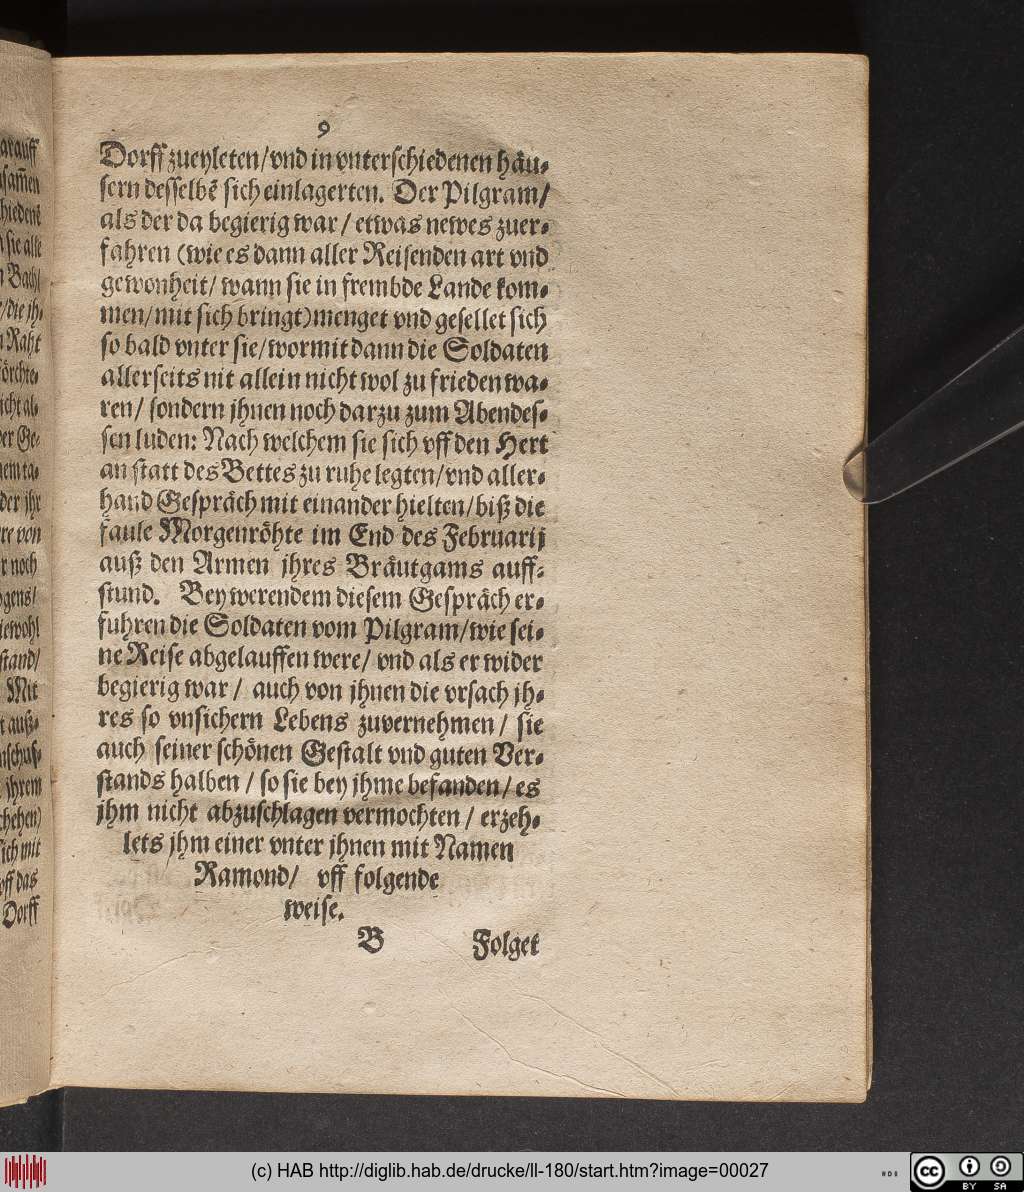 9
Dorff zueyleten/vnd in vnterschiedenen häu-
sern desselbẽ sich einlagerten. Der Pilgram/
als der da begierig war / etwas newes zuer-
fahren (wie es dann aller Reisenden art vnd
gewonheit/ wann sie in frembde Lande kom-
men/mit sich bringt) menget vnd gesellet sich
so bald vnter sie/wormit dann die Soldaten
allerseits nit allein nicht wol zu frieden wa-
ren/ sondern jhnen noch darzu zum Abendes-
sen luden: Nach welchem sie sich vff den Hert
an statt des Bettes zu ruhe legten/vnd aller-
hand Gespräch mit einander hielten/biß die
faule Morgenröhte im End des Februarij
auß den Armen jhres Bräutgams auff-
stund. Bey werendem diesem Gespräch er-
fuhren die Soldaten vom Pilgram/wie sei-
ne Reise abgelauffen were/ vnd als er wider
begierig war / auch von jhnen die vrsach jh-
res so vnsichern Lebens zuvernehmen / sie
auch seiner schönen Gestalt vnd guten Ver-
stands halben / so sie bey jhme befanden/ es
jhm nicht abzuschlagen vermochten / erzeh-
lets jhm einer vnter jhnen mit Namen
Ramond/ vff folgende
weise.
B Folget
arauff
samẽn
hiedenẽ
sie alle
Bach/
/die jh-
Raht
örchte-
icht al-
er Ge-
em ta-
der jhr
re von
r noch
ogens/
iewohl
stand/
Mit
t auß-
nschus-
jhrem
chehen)
sich mit
off das
Dorff
(c) HAB http://diglib.hab.de/drucke/ll-180/start.htm?image=00027
HAB
cc BY SA